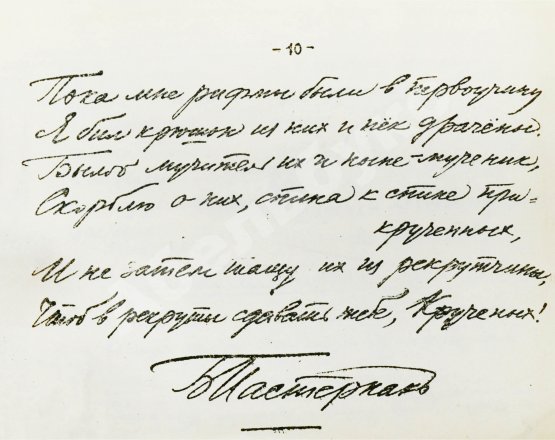 -10-
Пока мне рифмы были в первоучину
Я бил крюшон из них и пек драчёны.
Былой мучитель их и ныне-мученик,
Скорблю о них, спина к спине при-
крученных,
И не затем тащу их из рекрутчины,
Чтоб в рекруты сдавать тебе, Крученых!
Б Пастернакъ